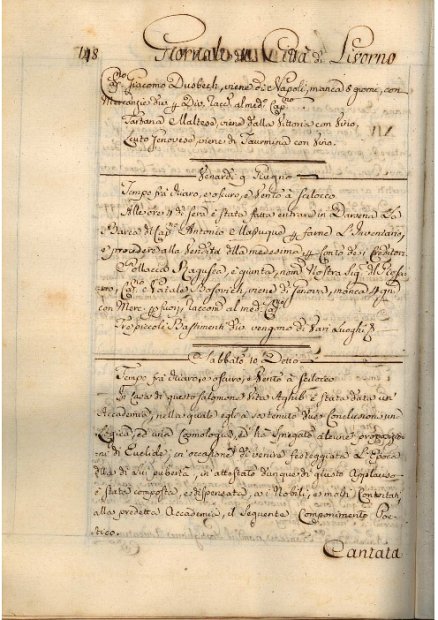 148 Giornale della Città di Livorno
Capno Giacomo Dusbech, viene di Napoli, manca 8 giorni, con
Mercanzie
Tartana Maltese, viene dalla Vittoria con Vino.
Leuto Genovese, viene di Taurmina con Vino.
Venardi 9 Giugno
Tempo frà chiaro, e oscuro, e Vento à scilocco.
Alle ore di sera è stata fatta entrare in Darsena La
Barca di Capno Antonio Masuque farne L'Inventario,
e procedere alla Vendita della medesima Conto de' Creditori
Pollacca Ragusea, è giunta, nom. Nostra Sig. del Rosa
rio, Capno Natale viene di Genova, manca 4 gni
con Merc. Raccom. al med. Capno
Tre piccoli Bastimenti vengono di Vari Luoghi
Sabbato 10 Detto
Tempo frà chiaro, e oscuro, e Vento à scilocco
In Casa di questo Salomone Vita Aghib è stata data un
Accademia, nella quale egli à sostenuto due Conclusioni in
Logica, ed una Cosmologica, e hà spiegato alcune proposizio
ni di Euclide, in occasione di venire festeggiata L'Epoca
della di lui pubertà, in attestato dunque di giusto Applauso
è stata composta, e dispensata, a i Nobili, e molti Convitati
alla predetta Accademia, il seguente Componimento Poe
tico.
Cantata